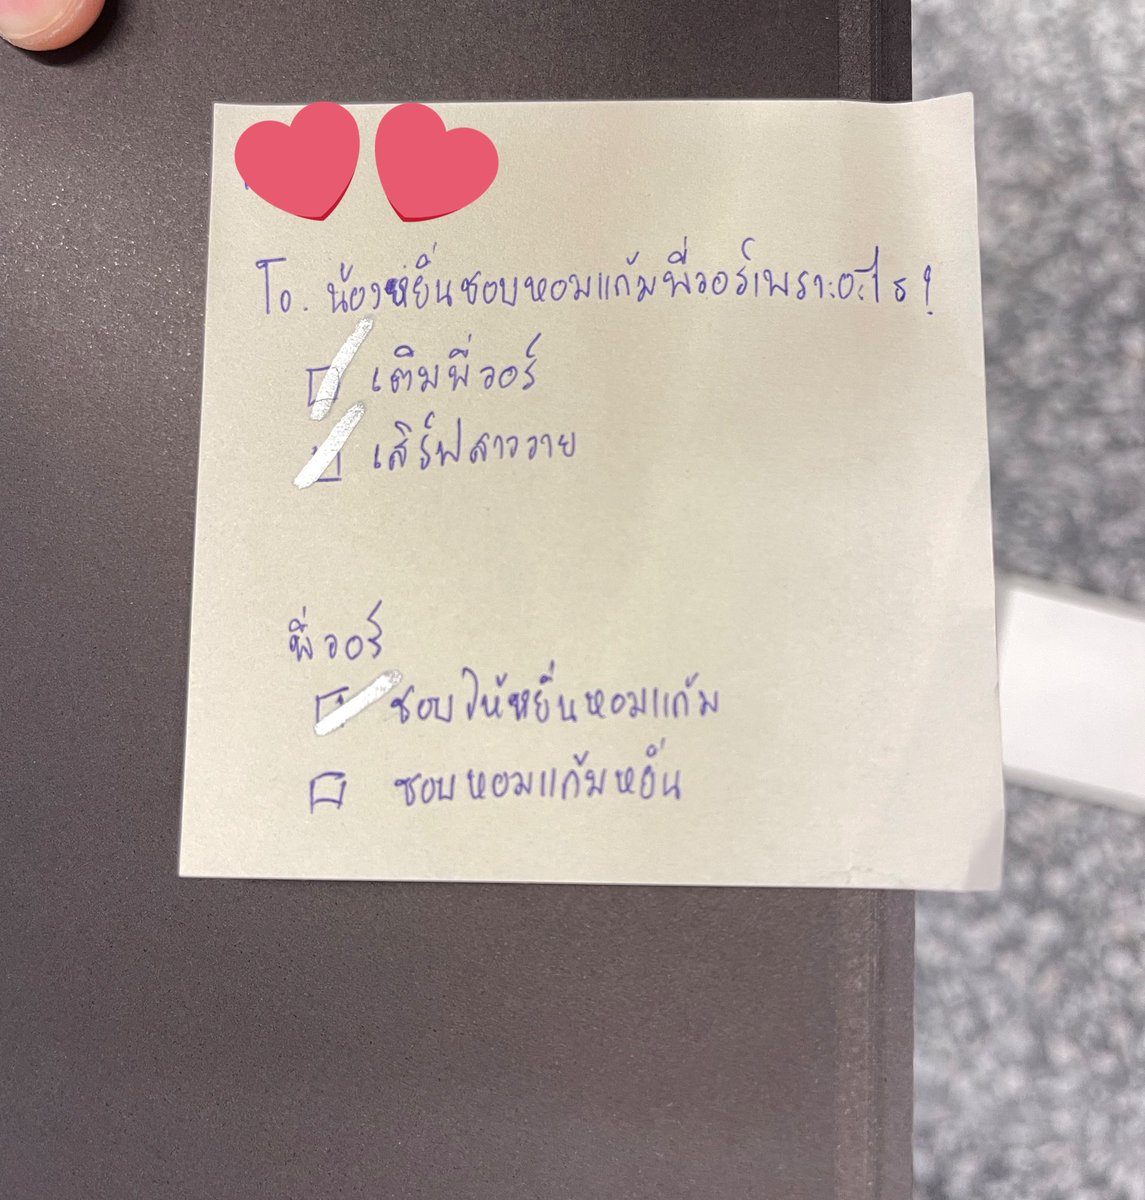 To. น้องหยิ่นชอบหอมแก้มพี่วอร์เพราะอะไร?
เติมพี่วอร์
เสิร์ฟสาววาย
พี่วอร์
ชอบให้หยิ่นหอมแก้ม
ชอบหอมแก้มหยิ่น